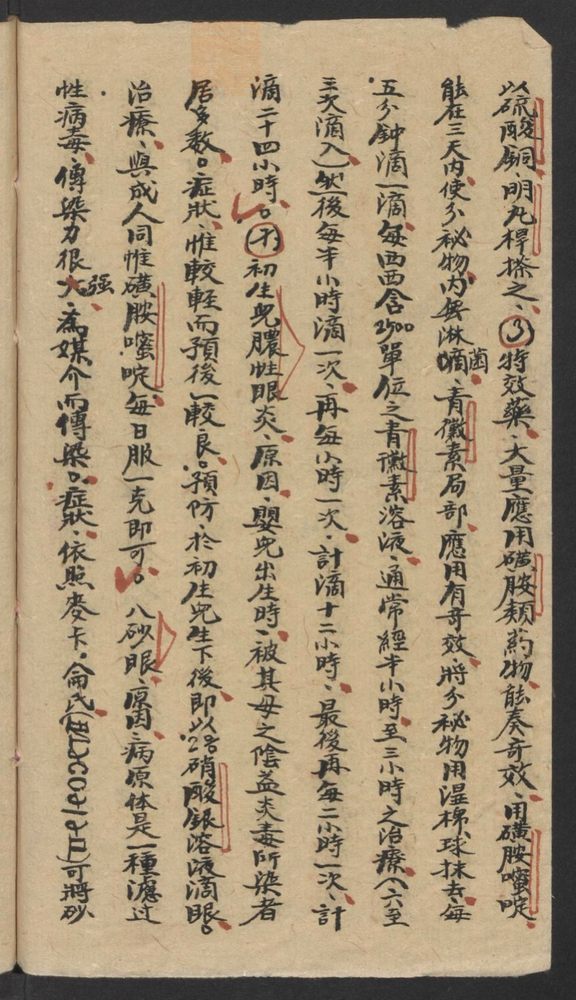 以硫酸銅、明丸桿搽之、③特效藥、大量應用磺胺類药物能奏奇效、用磺胺噻啶
能在三天內使分秘物內無淋嘀菌、青黴素局部應用有奇效、將分秘物用湿棉球抹去、每
五分鈡滴一滴每西西含2500單位之青黴素溶液、通常經半小時至三小時之治療、(六至
三次滴入)然後每半小時滴一次、再每小時一次、計滴十二小時、最後再每二小時一次、計
滴二十四小時。(附)初生兒膿性眼炎、原因、嬰兒出生時、被其母之陰益炎毒所染者
居多數。症狀、惟較輕而預後較良。預防、於初生兒生下後即以2%硝酸銀溶液滴眼。
治療、與成人同惟磺胺噻啶、每日服一克即可。八砂眼、原因、病原体是一種濾过
性病毒、傳染力很强、為媒介而傳染。症狀、依照麥卡。侖氏(Maccallan)可將砂